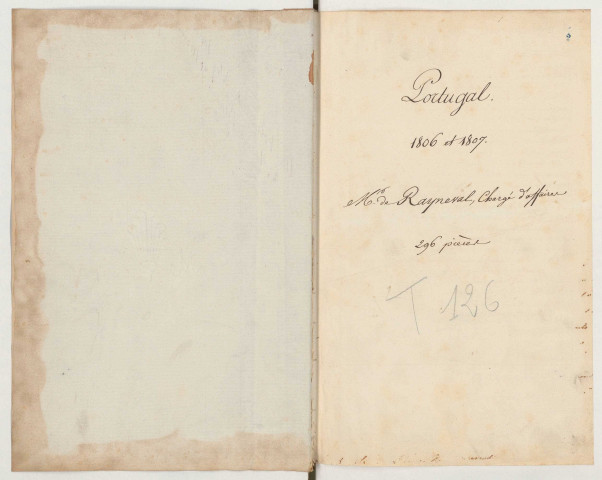 2
Portugal.
1806 et 1807.
Mr. de Rayneval, Chargé d'affaires
296 pièces
T 126